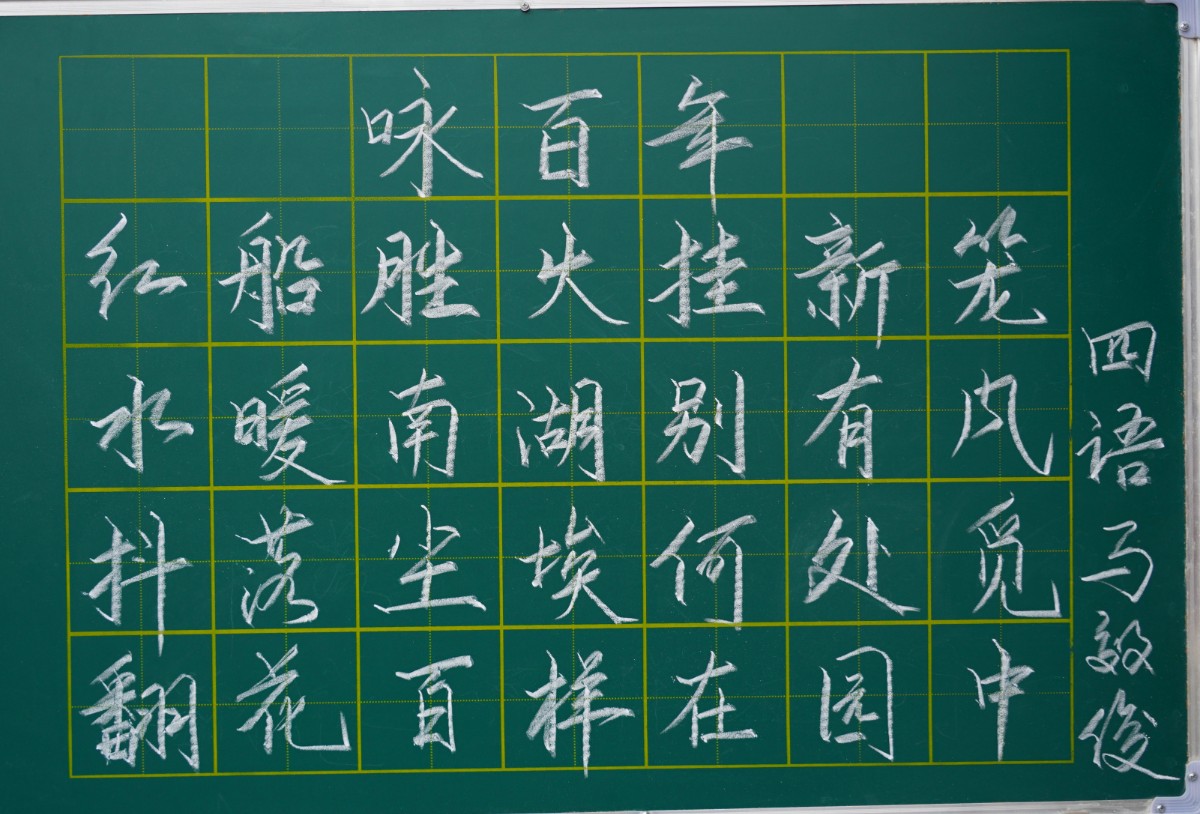 咏百年
红船胜火挂新笼
水暖南湖别有风
抖落尘埃何处觅
翻花百样在园中
四语马毅俊